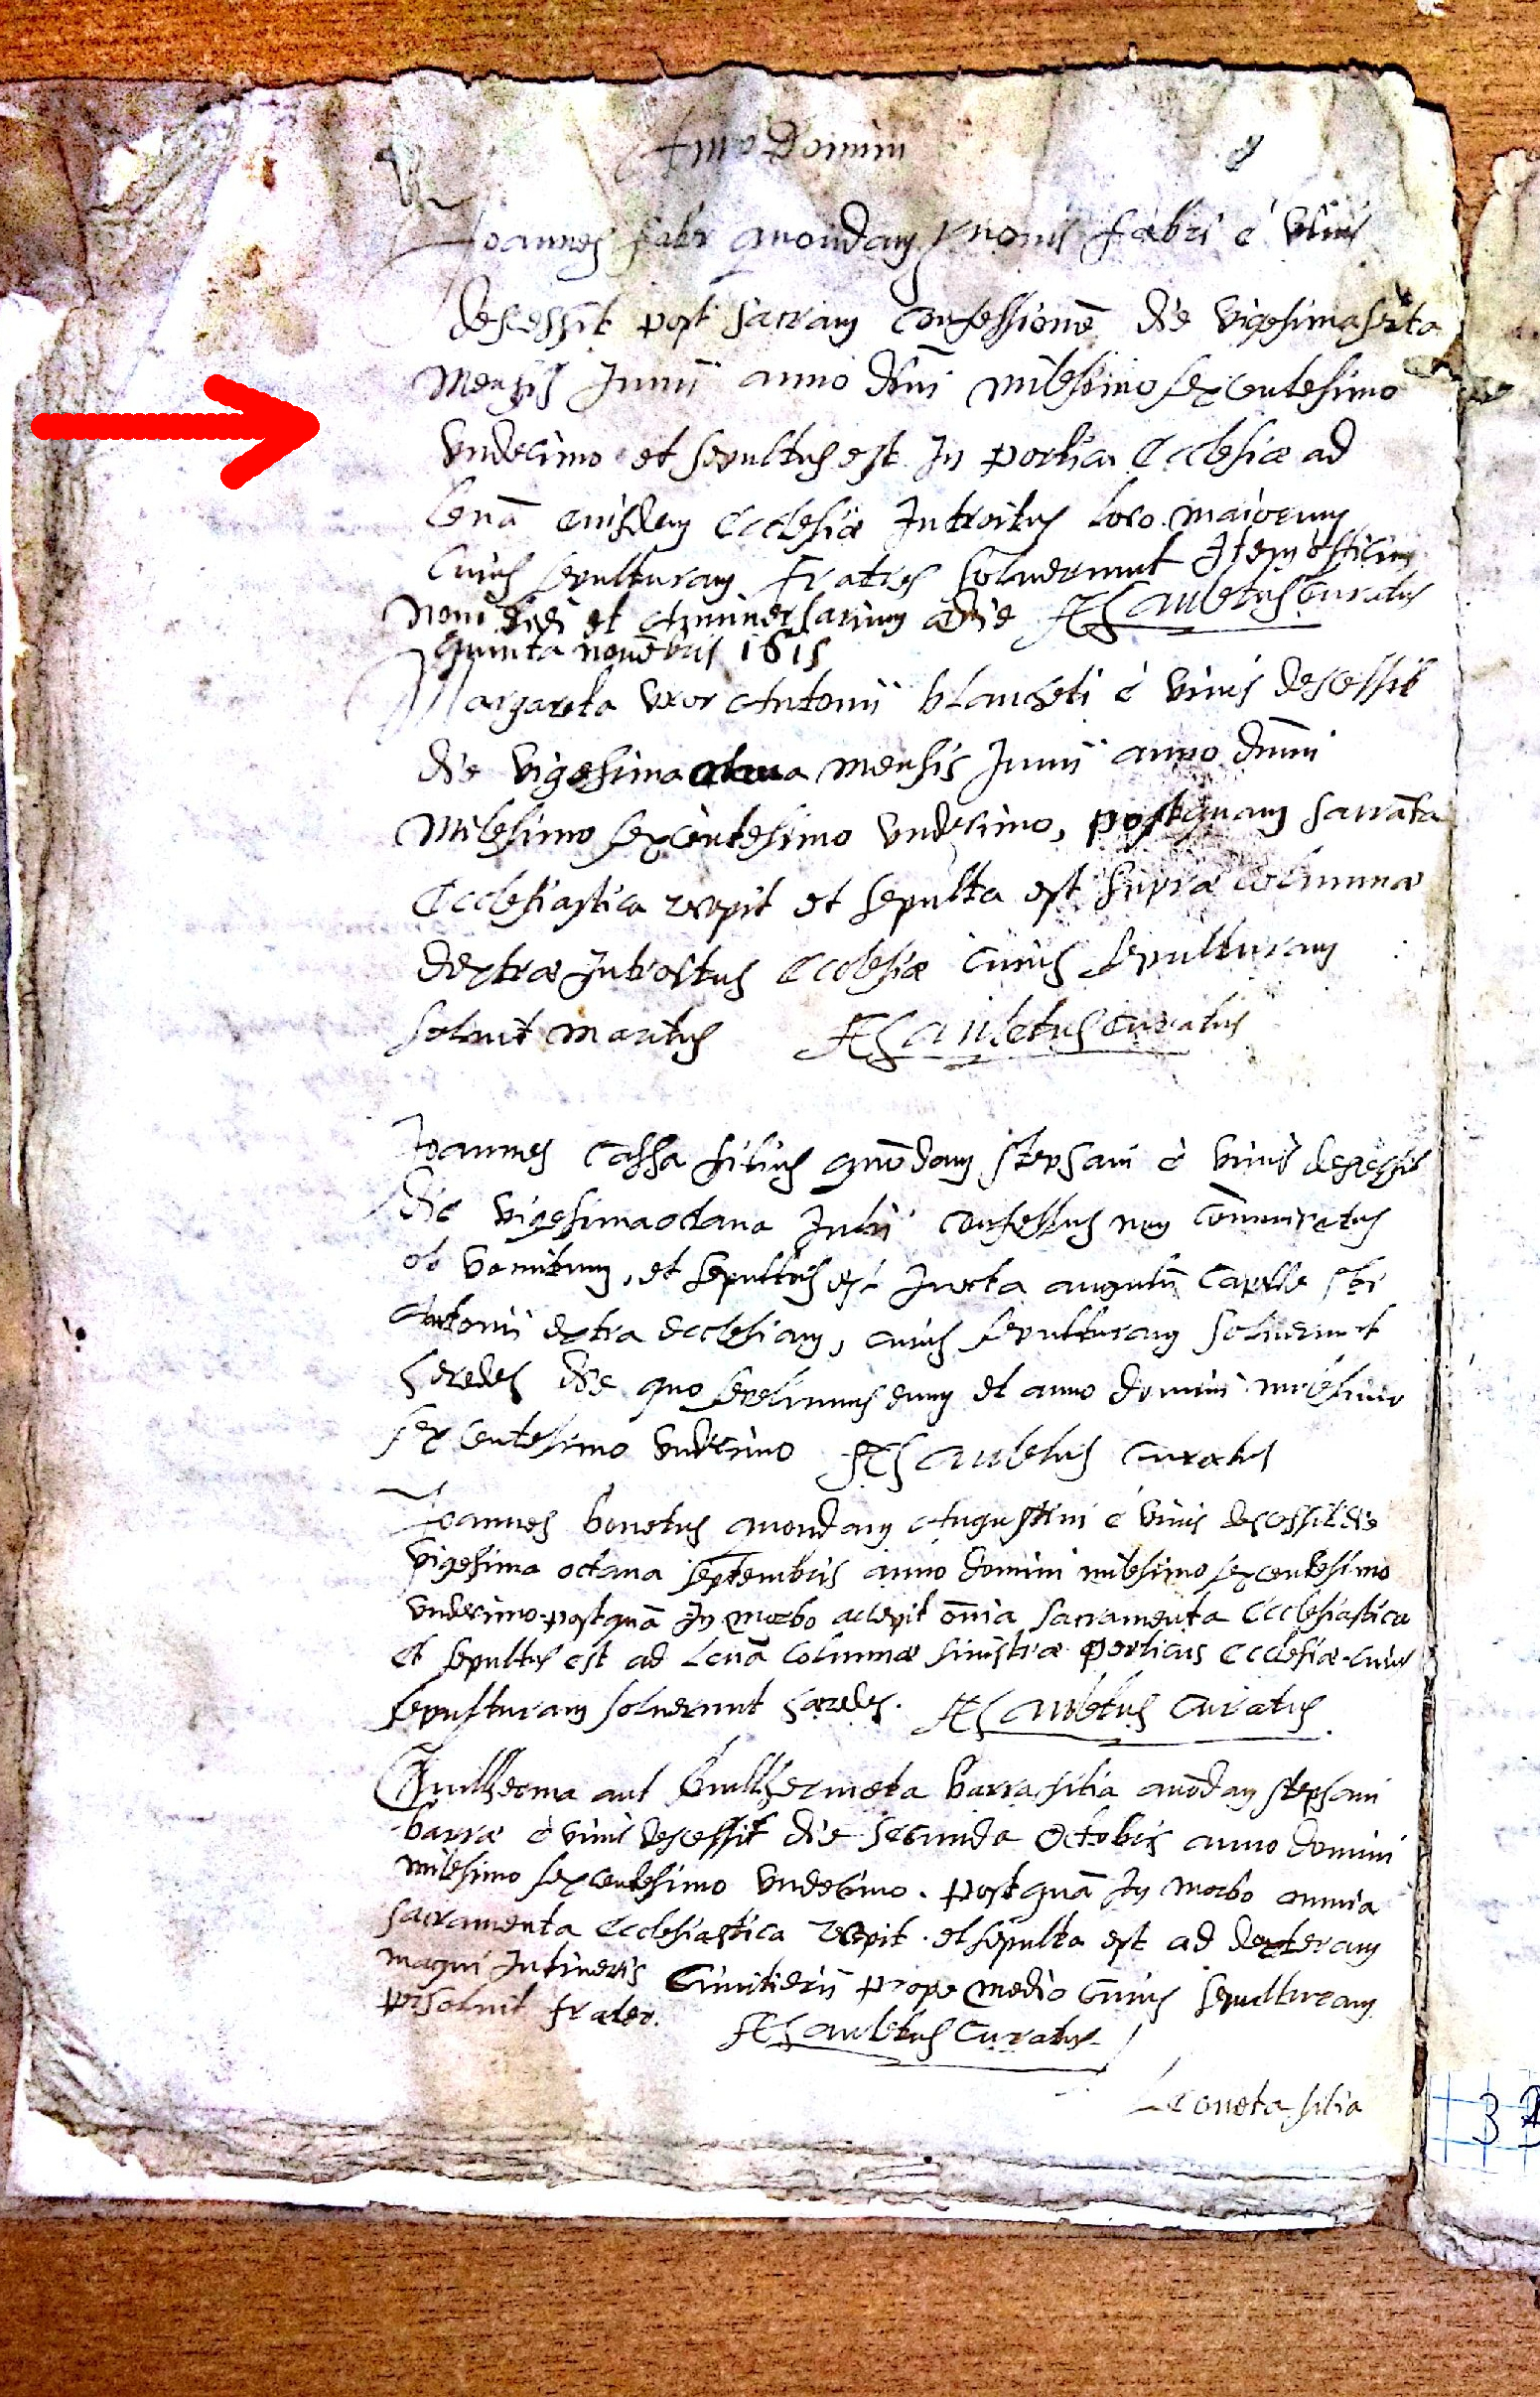 Anno Domini 8
Joannes fabr quondam fabri e vivis
descessit post sacram confessionē die vigesimasexta
Mensis Junii anno dñi milesimo sexcentesimo
undecimo et sepultus est In porticu Ecclesiæ ad
levā eiusdem Ecclesiæ Introitus loco maiorum
Cuius sepulturam fratres solverunt Item officium
novē diei et Anniversarium die Curatus
quinta novēbris 1615
Margareta uxor Antonii blancheti e vivis descessit
die vigesima mensis Junii anno dñni
Milesimo sexcentesimo undecimo, postquam sacrāta
Ecclesiastica recepit et sepulta est supra columnæ
dextræ Introitus Ecclesiæ cuius sepulturam
solvit Maritus Curatus
Joannes Cassa filius quōdam stephani e vivis descessit
die vigesimaoctava Julii confessus non cōmunicatus
ob vomitum, et sepultus est Iuxta angulū Capellæ sti
Antonii extra ecclesiam, cuius sepulturam solverunt
heredes die quo sepelivimus eum et anno domini milesimo
sexcentesimo undecimo curatus
Joannes bonetus quondam Augustini e vivis descessit die
vigesima octava septembris anno domini milesimo sexcentesimo
undecimo postquā In morbo accepit oñnia sacramenta Ecclesiastica
et sepultus est ad Levā Columnæ sinistræ porticus Ecclesiæ cuius
sepulturam solverunt hæredes. Curatus
Guilherma aut Guilhermeta barra filia quōdam stephani
barræ e vivis descessit die secunda Octobris anno domini
milesimo sexcentesimo undecimo. postquā In morbo omnia
sacramenta Ecclesiastica recepit. et sepulta est ad dexteram
magni Intineris Cimitierii prope medio Cuius sepulturam
persolvit frater. Curatus
Leoneta filia
3